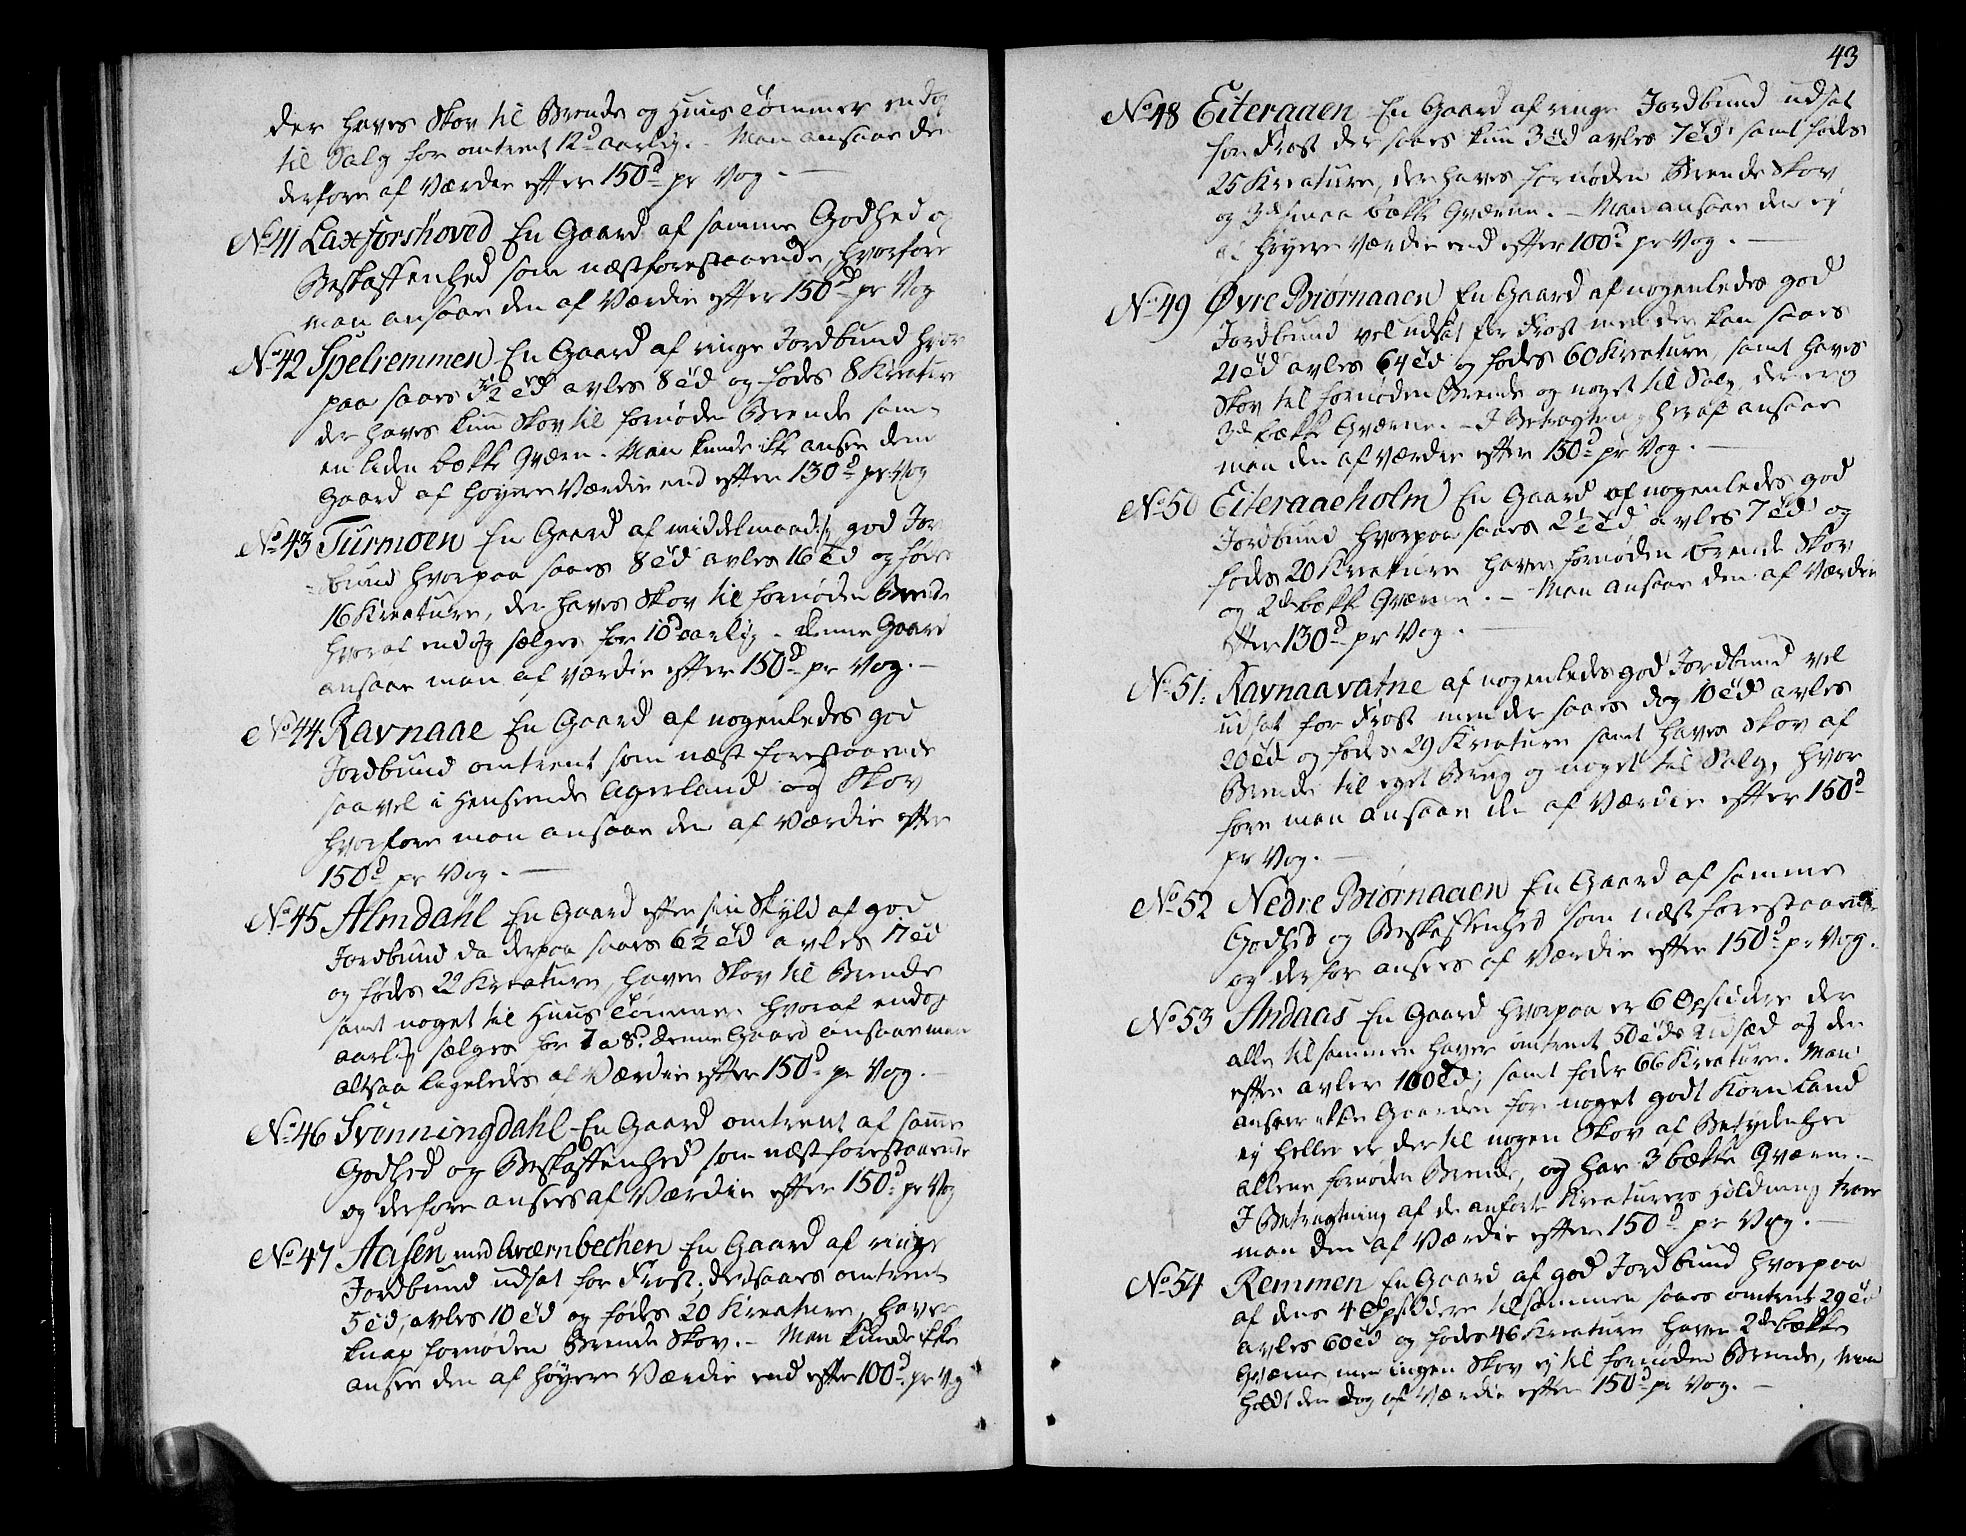 der haves Skov til Brende og Huus Tømmer endog
til Salg for omtrent 12d aarlig. - Man ansaae den
derfore af Værdie efter 150d pr Vog. -
No 41 Laxforshoved En Gaard af samme Godhed og
Beskaffenhed som næstforestaaende, hvorfore
man ansaae den af Værdie efter 150d pr Vog
No 42 Spelremmen En Gaard af ringe Jordbund hvor
paa saaes 3½ Td avles 8 Td og födes 8 Kreature
der haves kun Skov til fornøden Brende samt
en liden bække Qværn. Man kunde ikke ansee denne
Gaard af høyere Værdie end efter 130d pr Vog
No 43 Turmoen En Gaard af middelmaadig god Jor
bund hvorpaa saaes 8 Td avles 16 Td og födes
16 Kreature, der haves Skov til fornøden Brende
hvoraf endog sælges for 10d aarlig. Denne Gaard
ansaae man af Værdie efter 150d pr Vog. -
No 44 Ravnaae En Gaard af nogenledes god
Jordbund omtrent som næst forestaaende
saavel i Henseende Agerland og Skov
hvorfore man ansaae den af Værdie efter
150d pr Vog. -
No 45 Almdahl En Gaard efter sin Skyld af god
Jordbund da derpaa saaes 6½ Td avles 17 Td
og födes 22 Kreature, haver Skov til Brende
samt noget til Huus Tømmer hvoraf endog
aarlig sælges for 7 a 8d. denne Gaard ansaae man
altsaa ligeledes af Værdie efter 150d pr Vog. -
No 46 Svenningdahl En Gaard omtrent af samme
Godhed og Beskaffenhed som næst forestaaende
og derfore ansees af Værdie efter 150d pr Vog
No 47 Aasen med Qværnbechen En Gaard af ringe
Jordbund udsat for Frost; der saaes omtrent
5 Td, avles 10 Td og födes 20 Kreature, haver
knap fornøden Brende Skov. - Man kunde ikke
ansee den af høyere Værdie end efter 100d pr Vog
43
No 48 Eiteraaen En Gaard af ringe Jordbund udsat
for Frost der saaes kun 3 Td avles 7 Td samt födes
25 Kreature, der haves fornøden Brende Skov
og 3de smaa bække Qværne. - Man ansaae den ej
af høyere Værdie end efter 100d pr Vog. -
No 49 Øvre Biørnaaen En Gaard af nogenledes god
Jordbund vel udsat for Frost men der kan saaes
21 Td avles 64 Td og födes 60 Kreature, samt haves
Skov til fornøden Brende og noget til Salg, der er og
3de bække Qværne. - I Betragtning heraf ansaae
man den af Værdie efter 150d pr Vog. -
No 50 Eiteraaeholm En Gaard af nogenledes god
Jordbund hvorpaa saaes 2½ Td avles 7 Td og
födes 20 Kreature haver fornøden brende Skov
og 2de bække Qværne. - Man ansaae den af Værdie
efter 130d pr Vog. -
No 51. Ravnaavatne af nogenledes god Jordbund vel
udsat for Frost men der saaes dog 10 Td avles
20 Td og födes 29 Kreature samt haves Skov af
Brende til eget Brug og noget til Salg, hvor
fore man ansaae den af Værdie efter 150d
pr Vog. -
No 52 Nedre Biørnaaen En Gaard af samme
Godhed og Beskaffenhed som næst forestaaende
og derfor ansees af Værdie efter 150d pr Vog.
No 53 Andaas En Gaard hvorpaa er 6 Opsiddere der
alle tilsammen haver omtrent 50 Tds Udsæd og der
efter avler 100 Td; samt föder 66 Kreature. Man
anseer ikke Gaarden for noget godt Korn Land
ej heller er der til nogen Skov af Betydenhed
allene fornøden Brende, og har 3 bække Qværne. -
I Betragtning af de anførte Kreaturers Holdning troer
man den af Værdie efter 150d pr Vog. -
No 54 Remmen En Gaard af god Jordbund hvorpaa
af dens 4 Opsiddere tilsammen saaes omtrent 29 Td
avles 60 Td og födes 46 Kreature haver 2de bække
Qværne men ingen Skov ej til fornøden Brende, Man
holdt den dog af Værdie efter 150d pr Vog. -